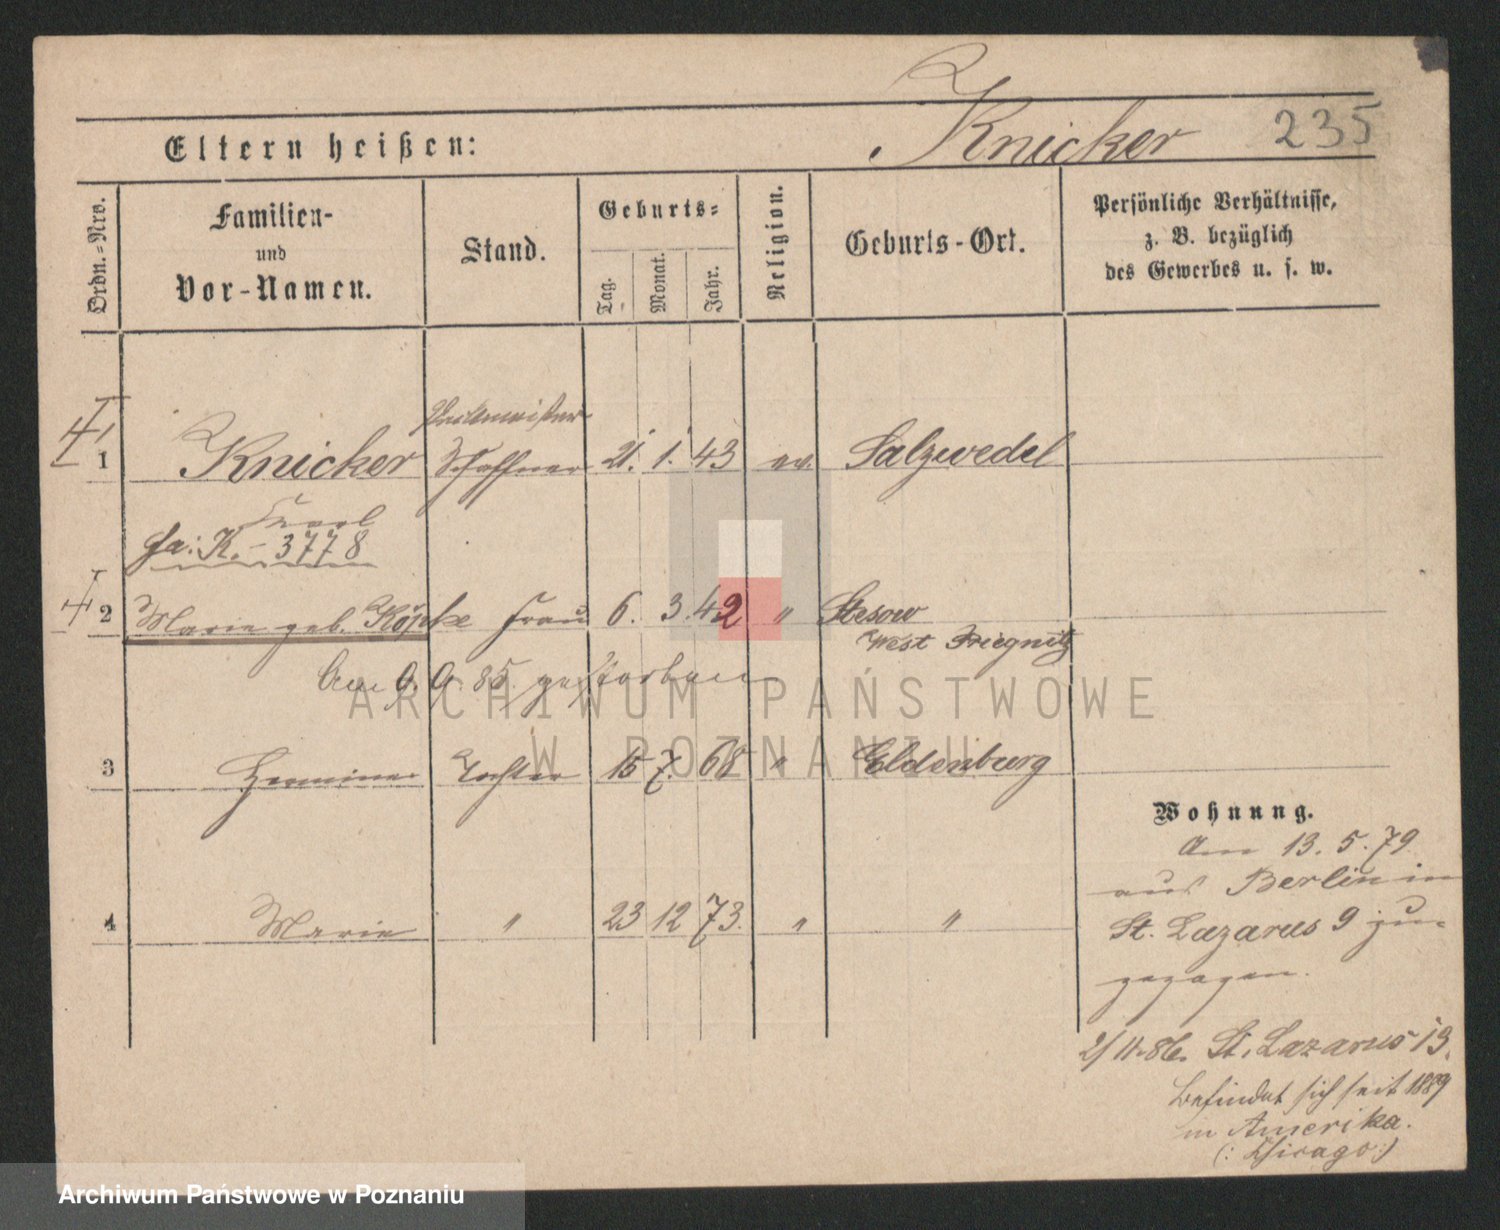 Knicker 235
Eltern heißen:
Ordn.-Nro.
Familien-
und
Vor-Namen.
Stand.
Geburts-
Tag.
Monat.
Jahr.
Religion.
Geburts-Ort.
Persönliche Verhältnisse,
z. B. bezüglich
des Gewerbes u. s. w.
1 Knicker Schaffner 21. 1. 43 ev. Salzwedel
Karl
fa: K. - 3778
2 Marie geb. Köpke Frau 6. 3. 42 " Stesow
West Priegnitz
Am 9. 9. 85 gestorben
3 Hermine Tochter 15 7. 68 " Eldenburg
4 Marie " 23 12 73. " "
Wohnung.
Am 13. 5. 79
aus Berlin in
St. Lazarus 9 zu-
gezogen.
2/11.86. St. Lazarus 13.
befindet sich seit 1889
in Amerika.
(: Chicago :)
ARCHIWUM PAŃSTWOWE
W POZNANIU
Archiwum Państwowe w Poznaniu